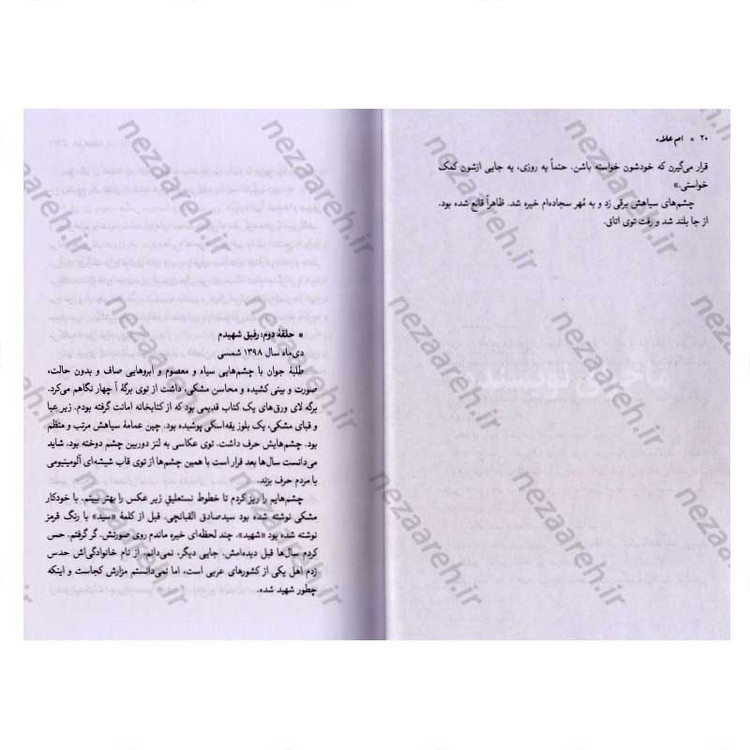 ۲۰ * ام علاء
قرار می‌گیرن که خودشون خواسته باشن. حتماً یه روزی، یه جایی ازشون کمک
خواستی.»
چشم‌های سیاهش برقی زد و به مُهر سجاده‌ام خیره شد. ظاهراً قانع شده بود.
از جا بلند شد و رفت توی اتاق.
* حلقهٔ دوم: رفیق شهیدم
دی‌ماه سال ۱۳۹۸ شمسی
طلبهٔ جوان با چشم‌هایی سیاه و معصوم و ابروهایی صاف و بدون حالت،
صورت و بینی کشیده و محاسن مشکی، داشت از توی برگهٔ آ چهار نگاهم می‌کرد.
برگه لای ورق‌های یک کتاب قدیمی بود که از کتابخانه امانت گرفته بودم. زیر عبا
و قبای مشکی، یک بلوز یقه‌اسکی پوشیده بود. چین عمامهٔ سیاهش مرتب و منظم
بود. چشم‌هایش حرف داشت. توی عکاسی به لنز دوربین چشم دوخته بود. شاید
می‌دانست سال‌ها بعد قرار است با همین چشم‌ها از توی قاب شیشه‌ای آلومینیومی
با مردم حرف بزند.
چشم‌هایم را ریز کردم تا خطوط نستعلیق زیر عکس را بهتر ببینم. با خودکار
مشکی نوشته شده بود سیدصادق القبانچی. قبل از کلمهٔ «سید» با رنگ قرمز
نوشته شده بود «شهید». چند لحظه‌ای خیره ماندم روی صورتش. گُر گرفتم. حس
کردم سال‌ها قبل دیده‌امش. جایی دیگر. نمی‌دانم. از نام خانوادگی‌اش حدس
زدم اهل یکی از کشورهای عربی است، اما نمی‌دانستم مزارش کجاست و اینکه
چطور شهید شده.
nezaareh.ir